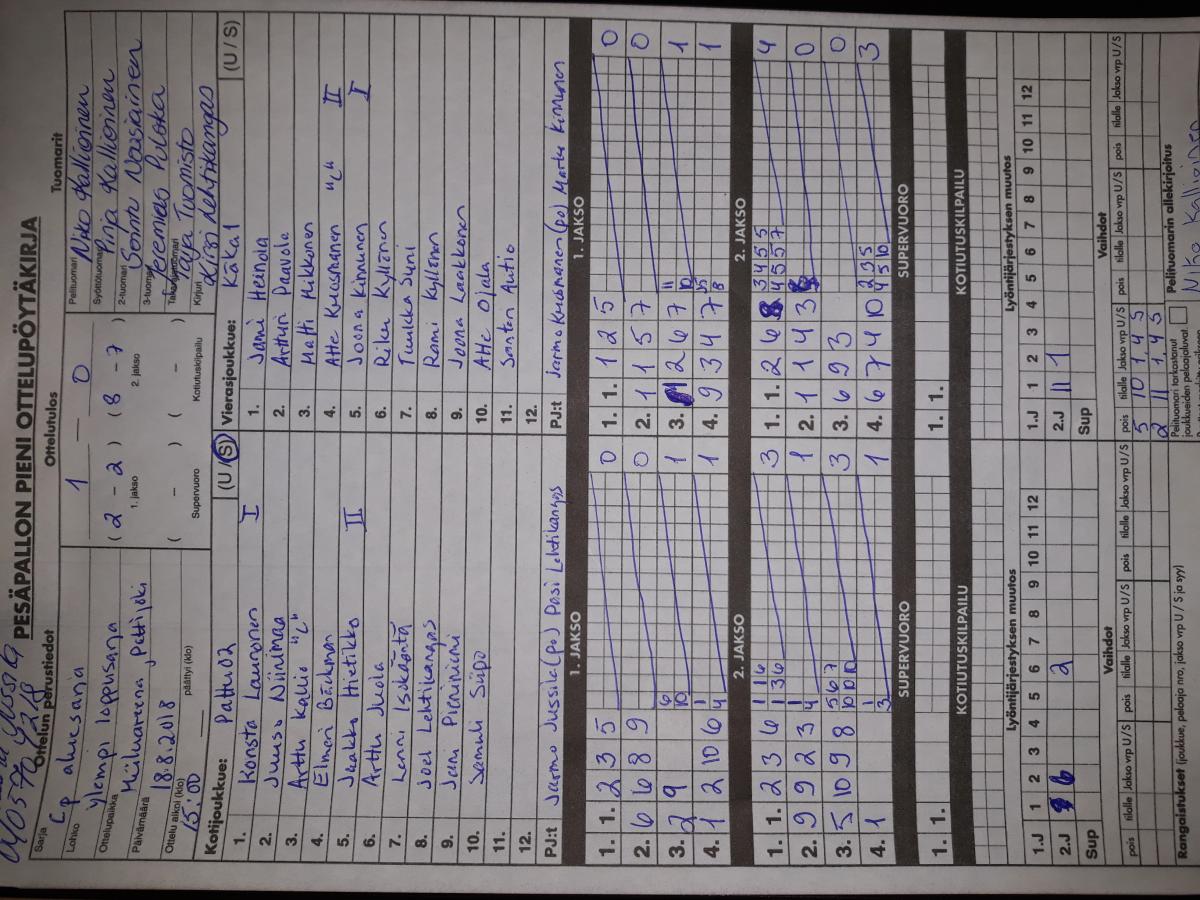 PESÄPALLON PIENI OTTELUPÖYTÄKIRJA
Ottelun perustiedot
Ottelutulos
Tuomarit
Sarja
Cp aluesarja
Lohko
ylempi loppusarja
Ottelupaikka
Hiluareena, Pattijoki
Päivämäärä
18.8.2018
Ottelu alkoi (klo)
15:00
päättyi (klo)
1 — 0
( 2 – 2 ) ( 8 – 7 )
1. jakso 2. jakso
( – ) ( – )
Supervuoro Kotiutuskilpailu
Pelituomari
Niko Kallioinen
Syöttötuomari
Pinja Kallioinen
2-tuomari
Sonntu
3-tuomari
Jeremias Pulska
Takarajatuomari
Taija Tuomisto
Kirjuri
Kirsi Lehtikangas
Kotijoukkue: Pattu02 (U / S)
1. Konsta Lauronen I
2. Juuso Niinimaa
3. Arttu Kallio "C"
4. Elmeri Bäckman
5. Jaakko Hietikko II
6. Arttu Juola
7. Lenni Isokääntä
8. Joel Lehtikangas
9. Jani Pieniniemi
10. Samuli Siipo
11.
12.
PJ:t Jarmo Jussila (po) Pasi Lehtikangas
Vierasjoukkue: KäKa1 (U / S)
1. Jami Heinola
2. Artturi Paavola
3. Matti Mikkonen
4. Atte Kuosmanen "C" II
5. Joona Kinnunen I
6. Riku Kyllönen
7. Tuukka Suni
8. Romi Kyllönen
9. Joona Laakkonen
10. Atte Ojala
11. Santeri Autio
12.
PJ:t Jarmo Kuosmanen (po) Marko Kinnunen
1. JAKSO
1. 1. 2 3 5 0
2. 6 6 8 9 0
3. 2 9 6 10 1
4. 1 2 10 6 1 4 1
2. JAKSO
1. 1. 2 3 6 1 1 1 6 1 3 6 3
2. 9 9 2 3 1 4 1
3. 5 10 9 8 5 6 7 10 10 10 3
4. 1 1 3 1
SUPERVUORO
1. 1.
KOTIUTUSKILPAILU
1. JAKSO
1. 1. 1 2 5 0
2. 1 1 5 7 0
3. 2 6 7 11 10 1
4. 9 3 4 7 8 1
2. JAKSO
1. 1. 2 6 3 4 5 5 4 5 5 7 4
2. 1 1 4 3 0
3. 6 9 3 0
4. 6 7 4 10 2 3 5 4 5 10 3
SUPERVUORO
1. 1.
KOTIUTUSKILPAILU
Lyöntijärjestyksen muutos
1.J 1 2 3 4 5 6 7 8 9 10 11 12
2.J 6 2
Sup
Lyöntijärjestyksen muutos
1.J 1 2 3 4 5 6 7 8 9 10 11 12
2.J 11 1
Sup
Vaihdot
pois tilalle Jakso vrp U/S pois tilalle Jakso vrp U/S pois tilalle Jakso vrp U/S
Vaihdot
pois tilalle Jakso vrp U/S pois tilalle Jakso vrp U/S pois tilalle Jakso vrp U/S
5 10 1. 4 S
2 11 1. 4 S
Rangaistukset (joukkue, pelaaja nro, jakso, vrp U / S ja syy)
Pelituomari tarkastanut
joukkueiden pelaajaluvat.
Pelituomarin allekirjoitus
Niko Kallioinen